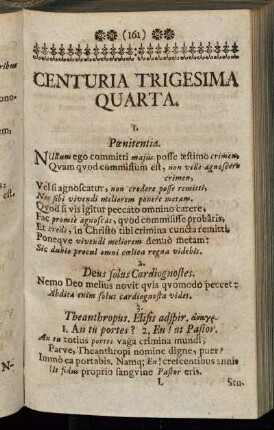 (161)
CENTURIA TRIGESIMA
QUARTA.
1.
Pœnitentia.
NUllum ego committi majus posse æstimo crimen,
Quam quod commissum est, non velle agnoscere
crimen,
Vel si agnoscatur, non credere posse remitti,
Nec sibi vivendi meliorem ponere metam.
Quod si vis igitur peccato omnino carere,
Fac promte agnoscas, quod commisisse probaris,
Et crede, in Christo tibi crimina cuncta remitti,
Poneque vivendi meliorem denuo metam:
Sic dubio procul omni cælica regna videbis.
2.
Deus solus Cardiognostes.
Nemo Deo melius novit quis quomodo peccet:
Abdita enim solus cardiognosta videt.
3.
Theanthropus. Elisis adspir. ἀναγρ.
1. An tu portes? 2. En! ut Pastor.
An tu totius portes vaga crimina mundi,
Parve, Theanthropi nomine digne, puer?
Immò ea portabis. Nam; En! crescentibus annis
Ut fidus proprio sanguine Pastor eris.
L
Stu-